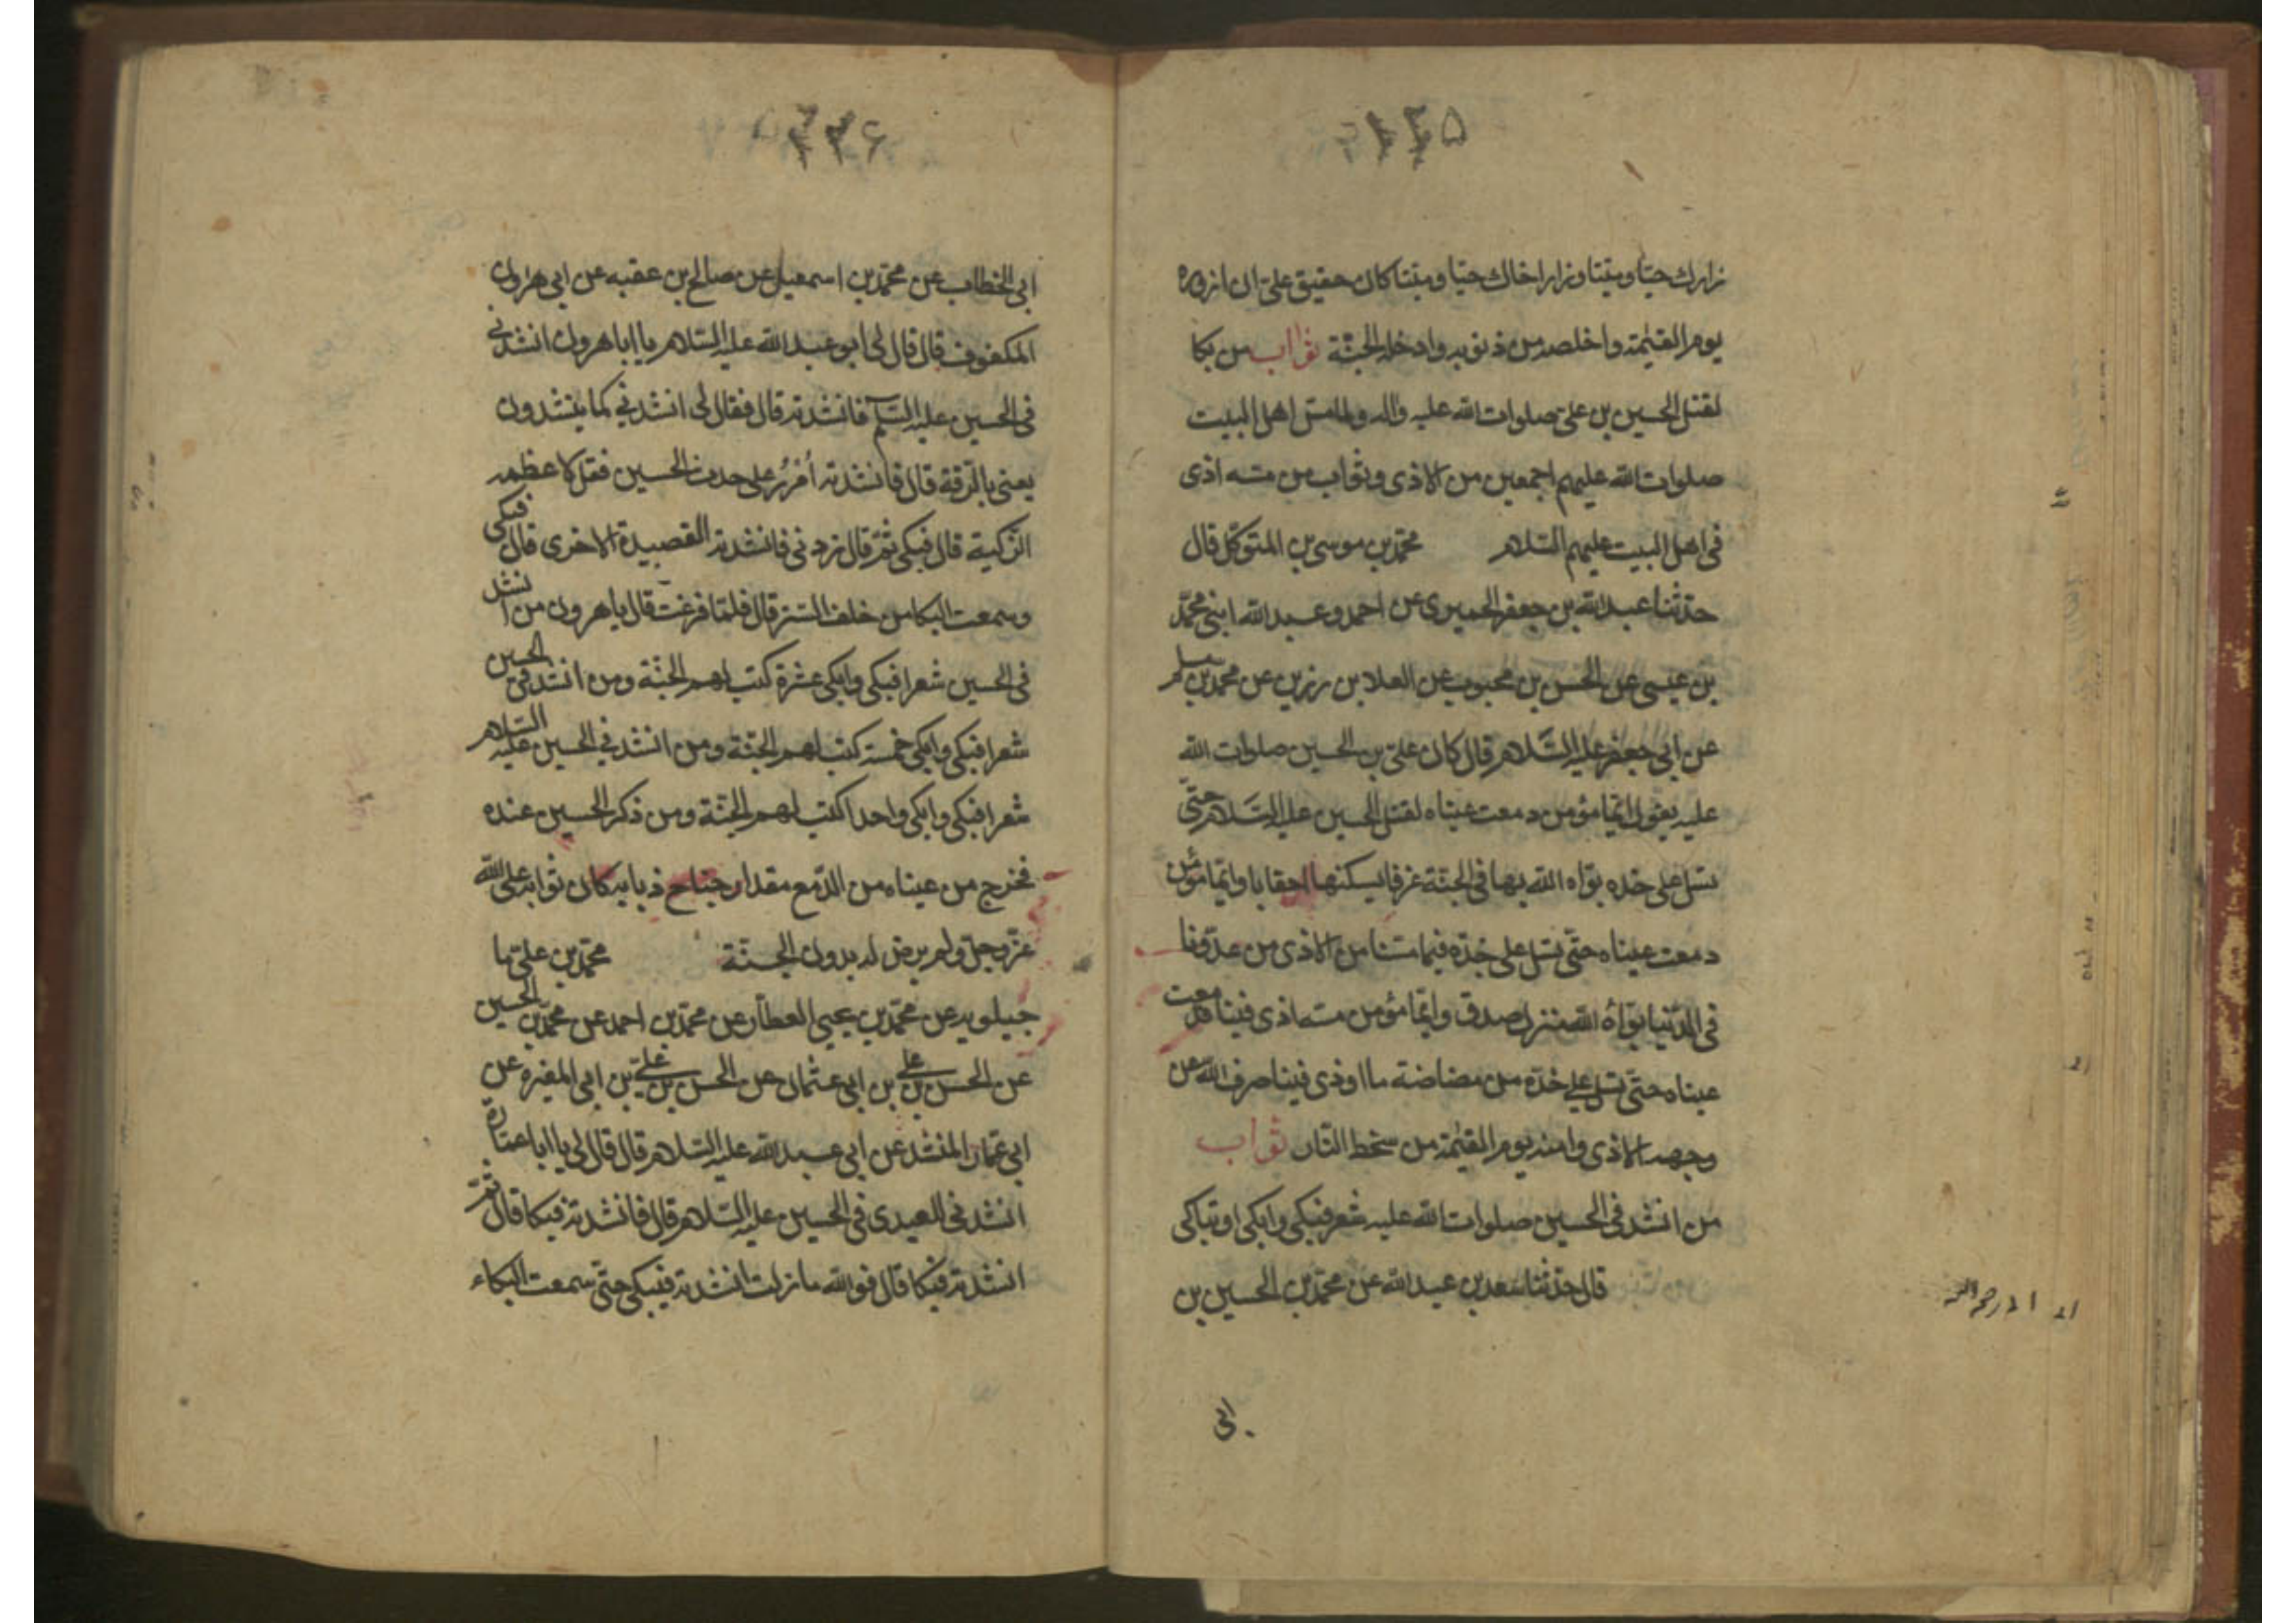 ۲۲۵
زارك حيّا وميّتا وزار اخاك حيّا وميّتا كان حقيق علىّ ان ازوره
يوم القيٰمة واخلصه من ذنوبه وادخله الجنّة ثواب من بكا
لقتل الحسين بن علىّ صلوات الله عليه واله ولما مسّ اهل البيت
صلوات الله عليهم اجمعين من الاذى وثواب من مسّه اذى
فى اهل البيت عليهم السّلام محمّد بن موسى بن المتوكّل قال
حدّثنا عبد الله بن جعفر الحميرى عن احمد وعبد الله ابنى محمّد
بن عيسى عن الحسن بن محبوب عن العلا بن رزين عن محمد بن مسلم
عن ابى جعفر عليه السّلام قال كان علىّ بن الحسين صلوات الله
عليه يقول ايّما مؤمن دمعت عيناه لقتل الحسين عليه السّلام حتّى
تسل على خدّه بوّاه الله بها فى الجنّة غرفا يسكنها احقابا وايّما مؤمن
دمعت عيناه حتّى تسل على خدّه فيما مسّنا من الاذى من عدوّنا
فى الدّنيا بوّاه الله منزل صدق وايّما مؤمن مسّه اذى فينا فدمعت
عيناه حتّى تسل على خدّه من مضاضة ما اوذى فينا صرف الله عن
وجهه الاذى وامنه يوم القيٰمة من سخط النّار ثواب
من انشد فى الحسين صلوات الله عليه شعر فبكى وابكى او تباكى
قال حدّثنا سعد بن عبد الله عن محمّد بن الحسين بن
ابى
۲۲۶
ابى الخطاب عن محمّد بن اسمعيل عن صالح بن عقبه عن ابى هرون
المكفوف قال قال لى ابو عبد الله عليه السّلام يا ابا هرون انشدنى
فى الحسين عليه السّلم فانشدته قال فقال لى انشدنى كما ينشدون
يعنى بالرّقة قال فانشدته اُمْرُرْ على جدث الحسين فقل لاعظمه
الزّكية قال فبكى ثمّ قال زدنى فانشدته القصيدة الاخرى قال فبكى
وسمعت البكا من خلف السّتر قال فلمّا فرغت قال يا هرون من انشد
فى الحسين شعرا فبكى وابكى عشرة كتب لهم الجنّة ومن انشد فى الحسين
شعرا فبكى وابكى خمسة كتب لهم الجنّة ومن انشد فى الحسين عليه السّلام
شعرا فبكى وابكى واحدا كتب لهم الجنّة ومن ذكر الحسين عنده
فخرج من عيناه من الدّمع مقدار جناح ذبابه كان ثوابه على الله
عزّ وجلّ ولم يرض له بدون الجنّة محمّد بن علىّ ما
جيلويه عن محمّد بن يحيى العطّار عن محمّد بن احمد عن محمّد بن الحسين
عن الحسن بن على بن ابى عثمان عن الحسن بن علىّ بن ابى المغيره عن
ابى عمّار المنشد عن ابى عبد الله عليه السّلام قال قال لى يا ابا عمّارة
انشدنى العبدى فى الحسين عليه السّلام قال فانشدته فبكا قال ثمّ
انشدته فبكا قال فوالله ما زلت انشدته فيبكى حتّى سمعت البكاء